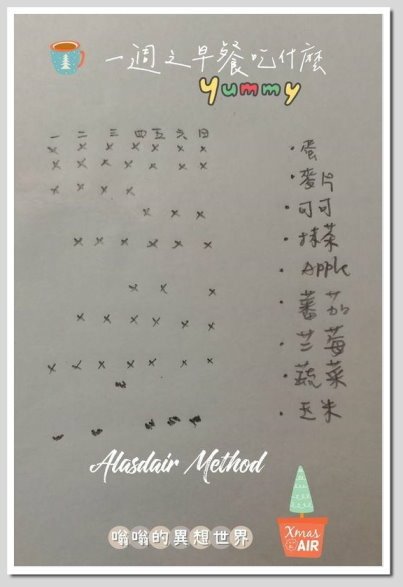 一週之早餐吃什麼
Yummy
一 二 三 四 五 六 日
· 蛋
· 麥片
· 可可
· 抹茶
· Apple
· 蕃茄
· 兰莓
· 蔬菜
· 玉米
Alasdair Method
嗡嗡的異想世界
Xmas
AIR